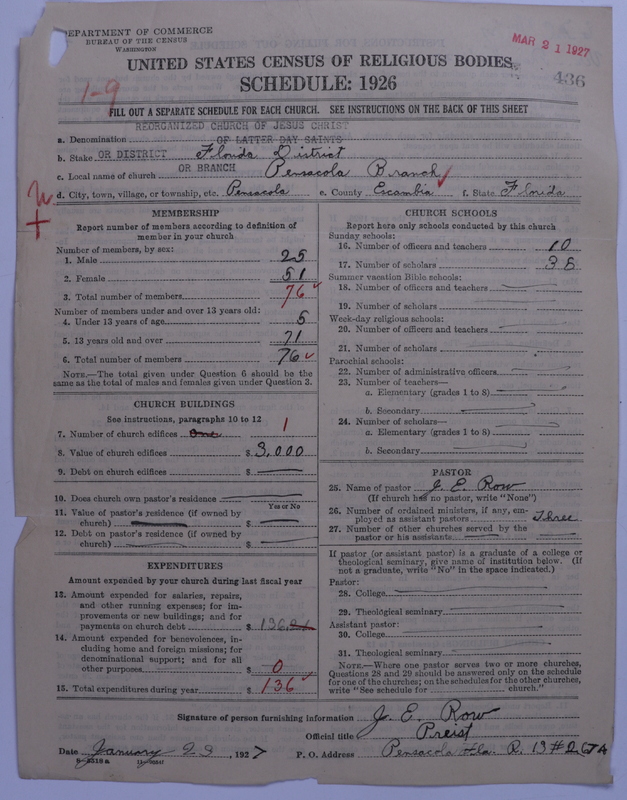 DEPARTMENT OF COMMERCE
BUREAU OF THE CENSUS
WASHINGTON
MAR 21 1927
UNITED STATES CENSUS OF RELIGIOUS BODIES
SCHEDULE: 1926
436
1-9
FILL OUT A SEPARATE SCHEDULE FOR EACH CHURCH. SEE INSTRUCTIONS ON THE BACK OF THIS SHEET
REORGANIZED CHURCH OF JESUS CHRIST
a. Denomination OF LATTER DAY SAINTS
b. Stake OR DISTRICT Florida District
OR BRANCH
c. Local name of church Pensacola Branch
d. City, town, village, or township, etc. Pensacola e. County Escambia f. State Florida
MEMBERSHIP
Report number of members according to definition of
member in your church
Number of members, by sex:
1. Male 25
2. Female 51
3. Total number of members 76
Number of members under and over 13 years old:
4. Under 13 years of age 5
5. 13 years old and over 71
6. Total number of members 76
NOTE.—The total given under Question 6 should be the
same as the total of males and females given under Question 3.
CHURCH BUILDINGS
See instructions, paragraphs 10 to 12
7. Number of church edifices One 1
8. Value of church edifices $ 3,000
9. Debt on church edifices $
10. Does church own pastor's residence
Yes or No
11. Value of pastor's residence (if owned by
church) $
12. Debt on pastor's residence (if owned by
church) $
EXPENDITURES
Amount expended by your church during last fiscal year
13. Amount expended for salaries, repairs,
and other running expenses; for im-
provements or new buildings; and for
payments on church debt $ 136
14. Amount expended for benevolences, in-
cluding home and foreign missions; for
denominational support; and for all
other purposes $ 0
15. Total expenditures during year $ 136
CHURCH SCHOOLS
Report here only schools conducted by this church
Sunday schools:
16. Number of officers and teachers 10
17. Number of scholars 38
Summer vacation Bible schools:
18. Number of officers and teachers
19. Number of scholars
Week-day religious schools:
20. Number of officers and teachers
21. Number of scholars
Parochial schools:
22. Number of administrative officers
23. Number of teachers—
a. Elementary (grades 1 to 8)
b. Secondary
24. Number of scholars—
a. Elementary (grades 1 to 8)
b. Secondary
PASTOR
25. Name of pastor J. E. Row
(If church has no pastor, write "None")
26. Number of ordained ministers, if any, em-
ployed as assistant pastors Three
27. Number of other churches served by the
pastor or his assistants
If pastor (or assistant pastor) is a graduate of a college or
theological seminary, give name of institution below. (If
not a graduate, write "No" in the space indicated.)
Pastor:
28. College
29. Theological seminary
Assistant pastor:
30. College
31. Theological seminary
NOTE.—Where one pastor serves two or more churches,
Questions 28 and 29 should be answered only on the schedule
for one of the churches; on the schedules for the other churches,
write "See schedule for church."
Signature of person furnishing information J. E. Row
Official title Preist
Date January 29 1927 P. O. Address Pensacola Fla. R. 13 #267A